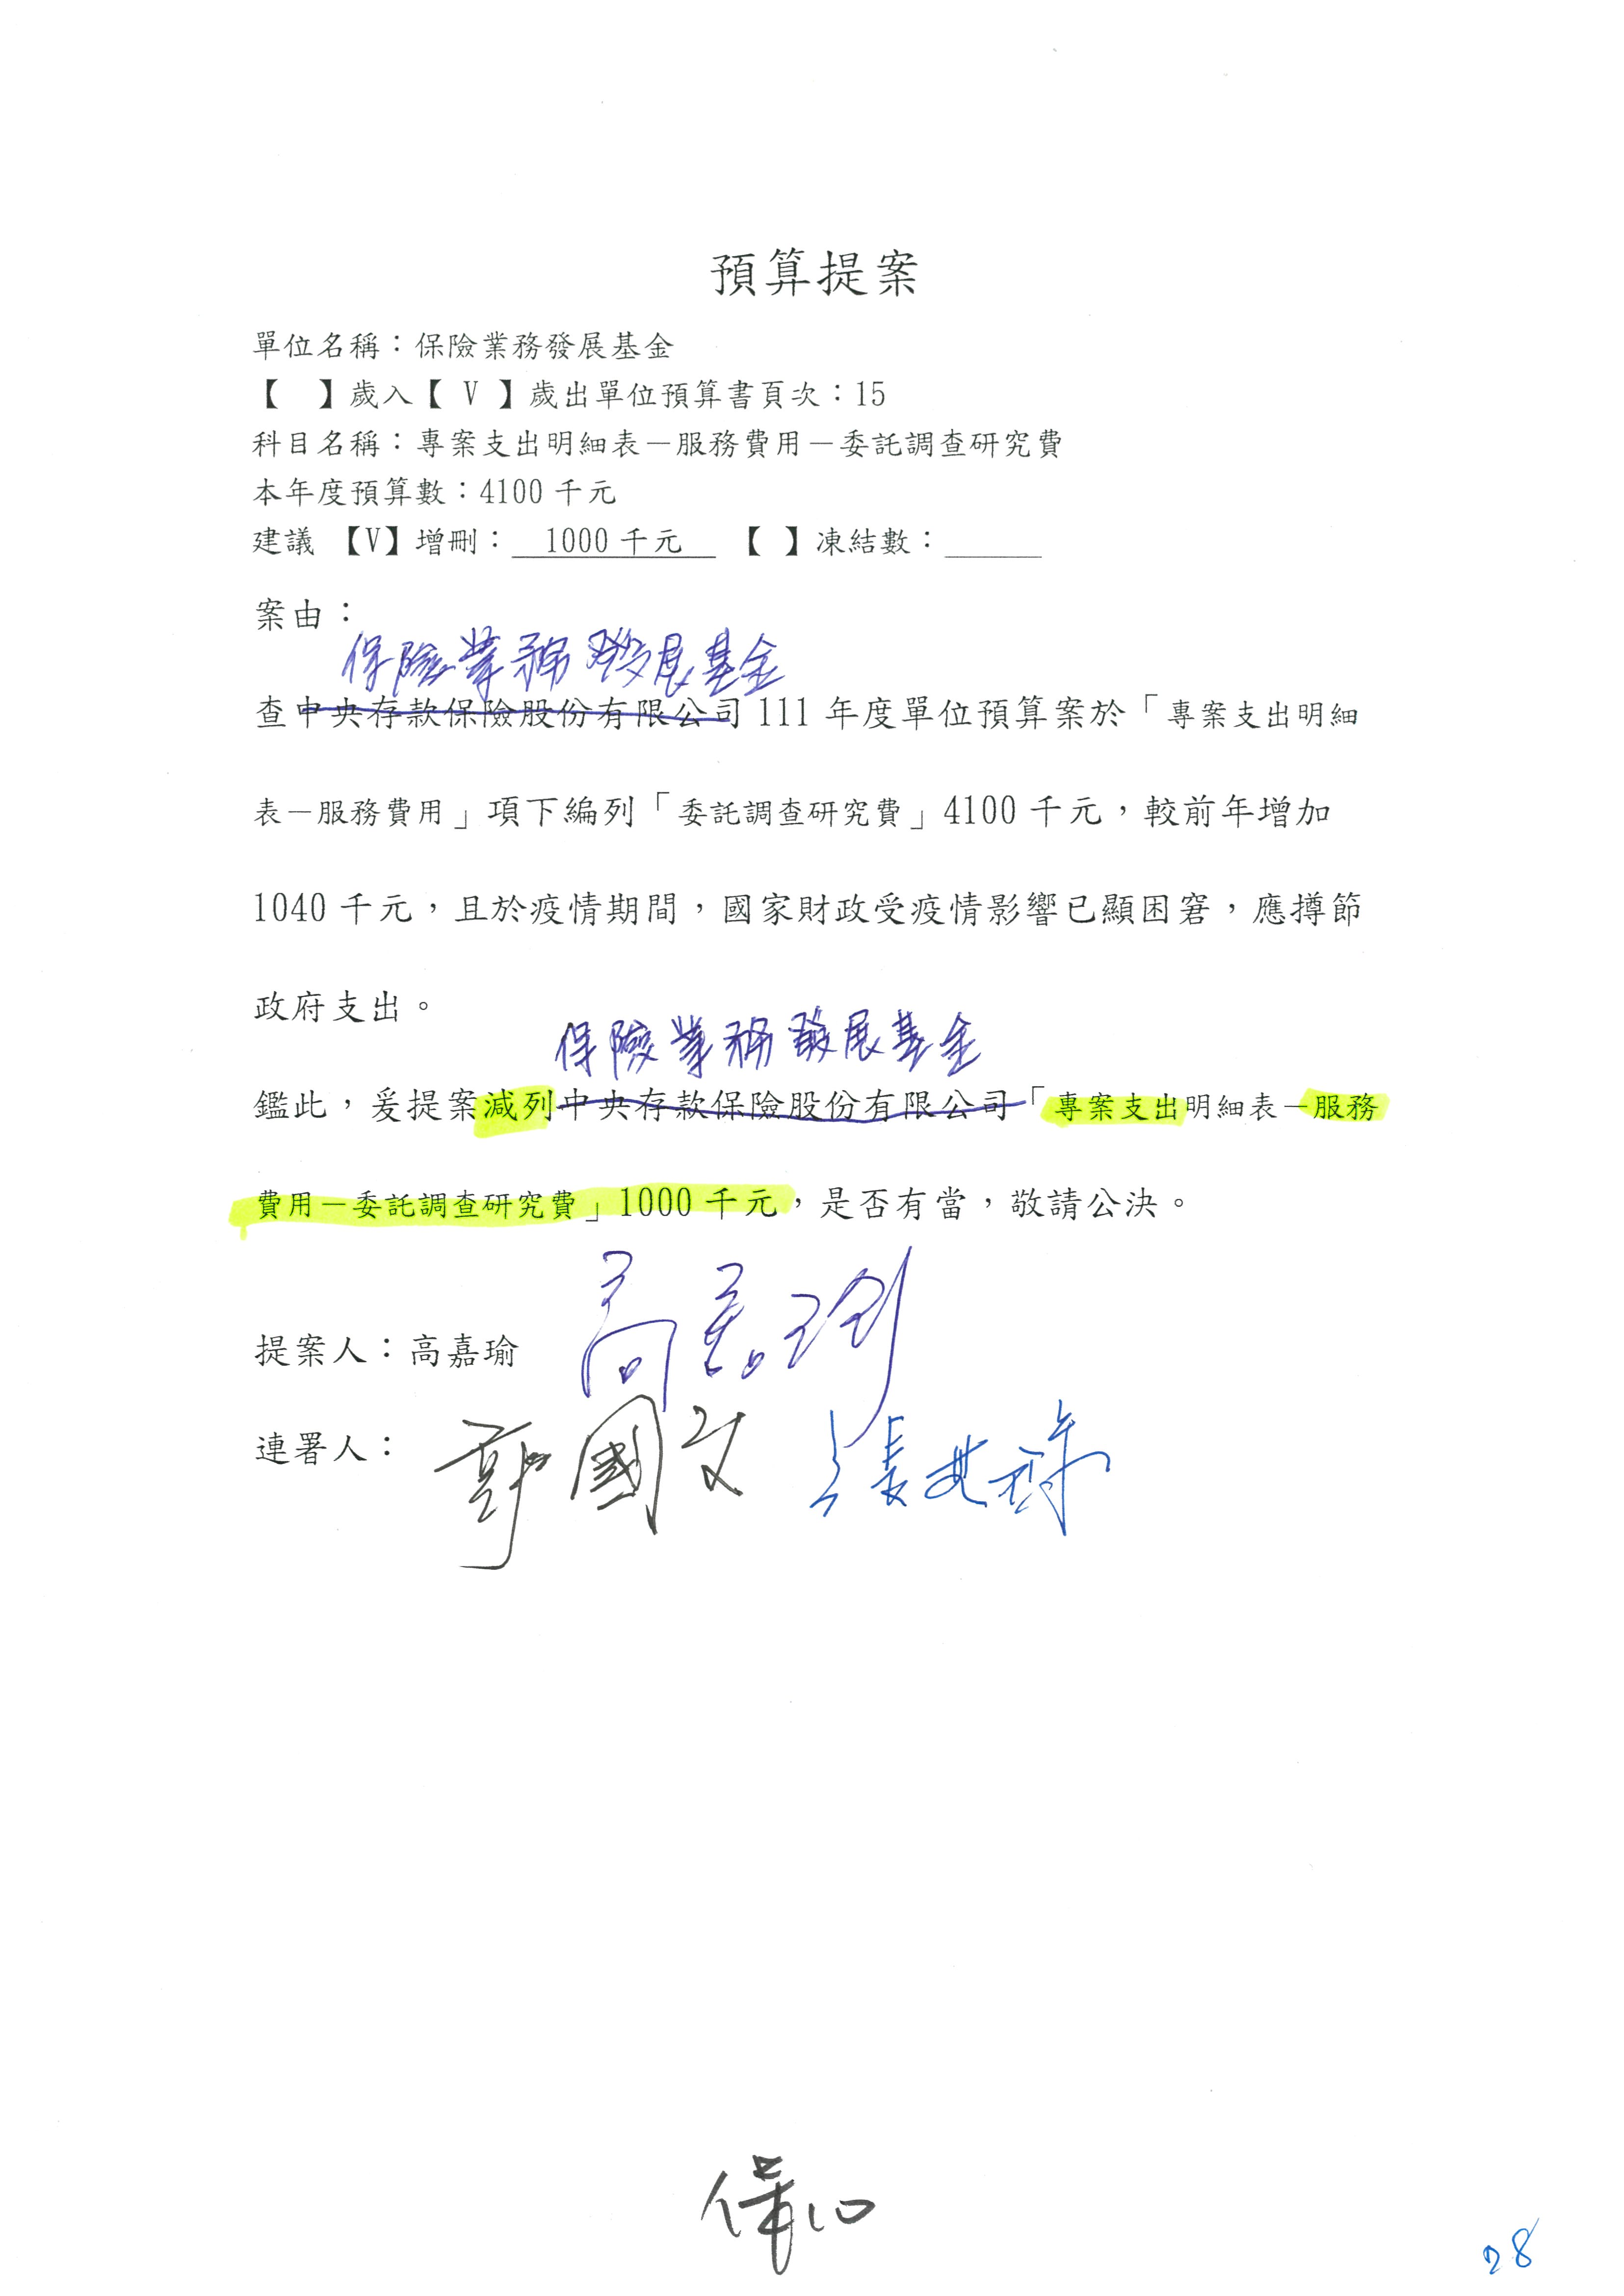 預算提案
單位名稱：保險業務發展基金
【　】歲入【 V 】歲出單位預算書頁次：15
科目名稱：專案支出明細表－服務費用－委託調查研究費
本年度預算數：4100 千元
建議 【V】增刪： 1000 千元 【 】凍結數：______
案由：
保險業務發展基金
查中央存款保險股份有限公司 111 年度單位預算案於「專案支出明細
表－服務費用」項下編列「委託調查研究費」4100 千元，較前年增加
1040 千元，且於疫情期間，國家財政受疫情影響已顯困窘，應撙節
政府支出。
保險業務發展基金
鑑此，爰提案減列中央存款保險股份有限公司「專案支出明細表－服務
費用－委託調查研究費」1000 千元，是否有當，敬請公決。
提案人：高嘉瑜 高嘉瑜
連署人： 郭國文 張其祿
28